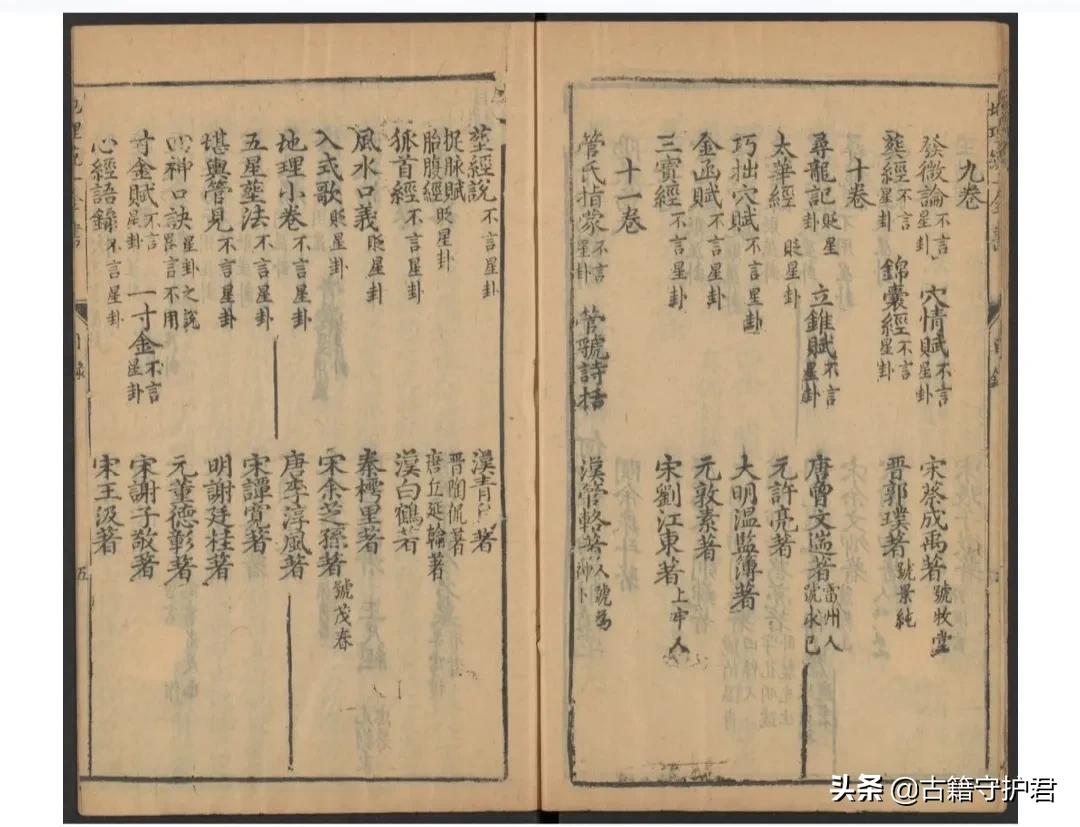 九卷
發微論不言星卦 穴情賦不言星卦 宋蔡成禹著號牧堂
葬經不言星卦 錦囊經不言星卦 晋郭璞著號景純
十卷
尋龍記貶星卦 立錐賦不言星卦 唐曾文遄著雷州人號求已
太華經貶星卦 元許亮著
巧拙穴賦不言星卦 大明溫監簿著
金函賦不言星卦 元敦素著
三寶經不言星卦 宋劉江東著上牢人
十一卷
管氏指蒙不言星卦 管虢詩括 漢管輅著人號為神卜
塟經說不言星卦 漢青著
捉脉賦 晋陶侃著
胎腹經貶星卦 唐丘延翰著
狐首經不言星卦 漢白鶴著
風水口義貶星卦 秦樗里著
入式歌貶星卦 宋余芝孫著號茂春
地理小卷不言星卦 唐李淳風著
五星塟法不言星卦 宋譚寬著
堪輿管見不言星卦 明謝廷桂著
神口訣星卦之說畧言不用 元董德彰著
寸金賦不言星卦 一寸金不言星卦 宋謝子敬著
心經語錄不言星卦 宋王汲著
目錄
五
头条 @古籍守护君